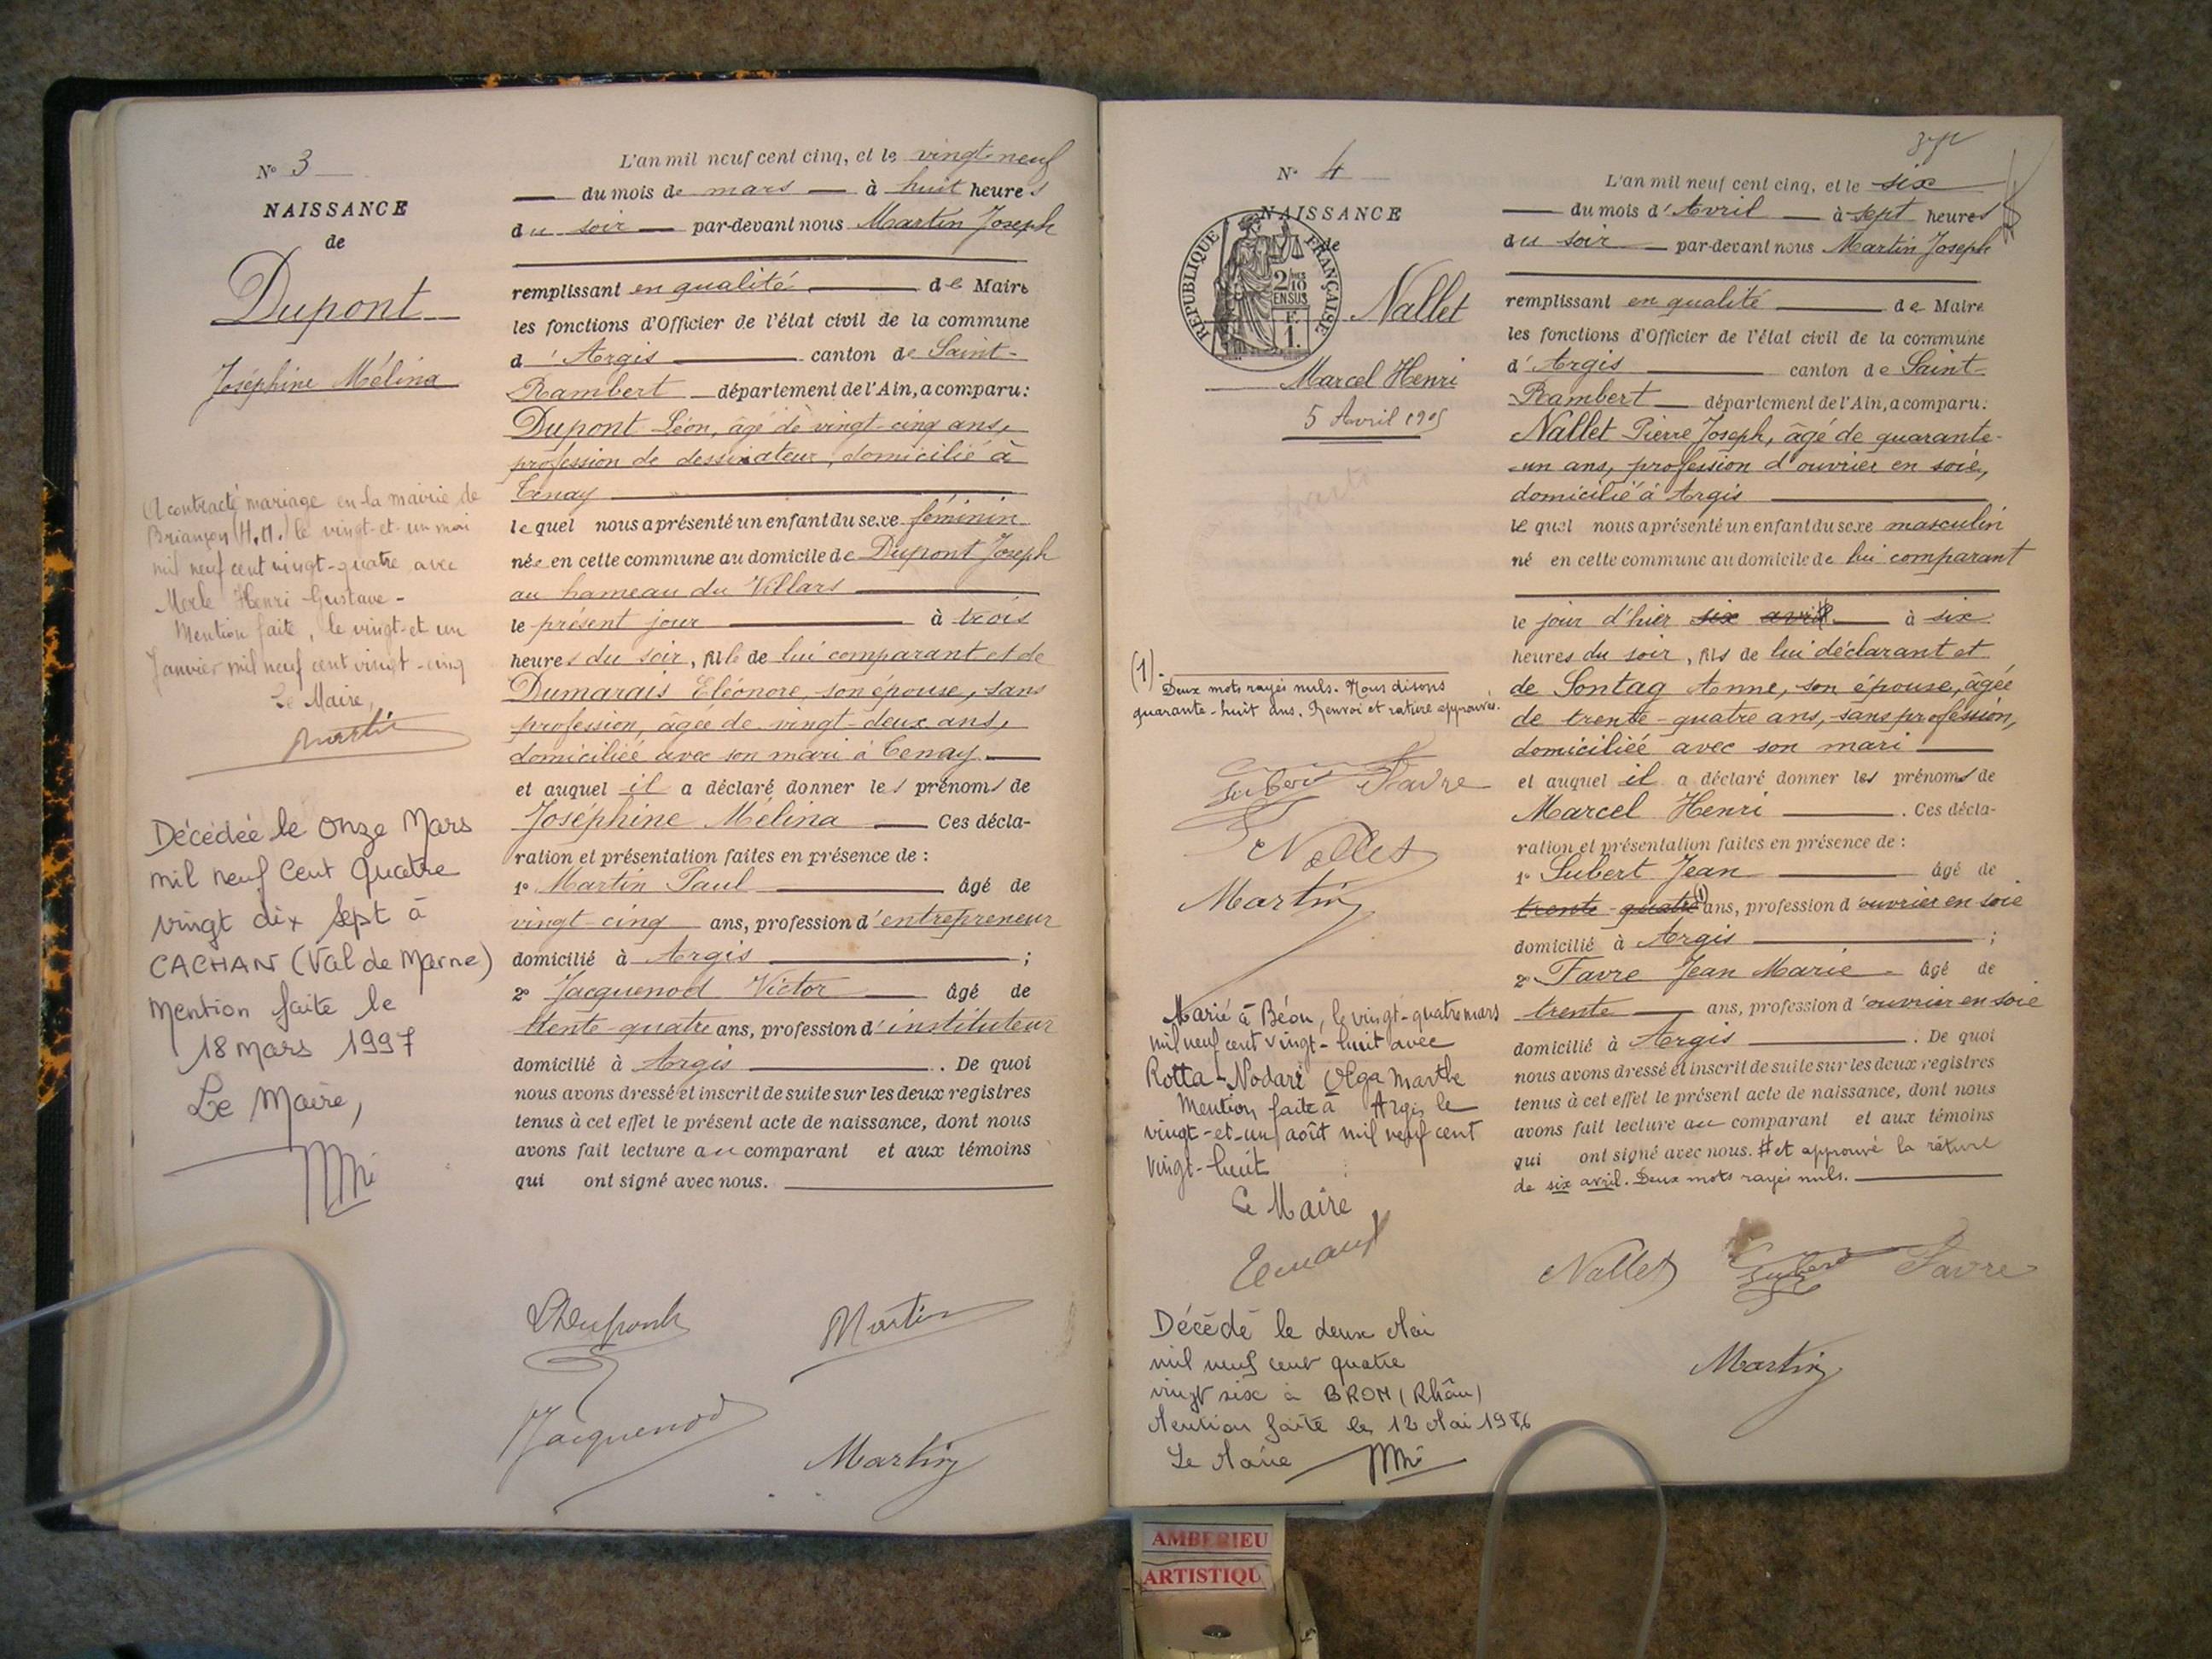 N° 3
NAISSANCE
de
Dupont
Joséphine Mélina
A contracté mariage en la mairie de
Briançon (H.A.) le vingt-et-un mai
mil neuf cent vingt-quatre avec
Merle Henri Gustave -
Mention faite, le vingt-et un
Janvier mil neuf cent vingt-cinq
Le Maire,
Martin
Décédée le onze Mars
mil neuf Cent Quatre
vingt dix Sept à
CACHAN (Val de Marne)
Mention faite le
18 mars 1997
Le Maire,
L'an mil neuf cent cinq, et le vingt-neuf
du mois de mars à huit heures
du soir par-devant nous Martin Joseph
remplissant en qualité de Maire
les fonctions d'Officier de l'état civil de la commune
d' Argis canton de Saint-
Rambert département de l'Ain, a comparu:
Dupont Léon, âgé de vingt-cinq ans,
profession de dessinateur, domicilié à
Tenay
lequel nous a présenté un enfant du sexe féminin
née en cette commune au domicile de Dupont Joseph
au hameau du Villars
le présent jour à trois
heures du soir, fille de lui comparant et de
Dumarais Eléonore, son épouse, sans
profession, âgée de vingt-deux ans,
domiciliée avec son mari à Tenay
et auquel il a déclaré donner les prénoms de
Joséphine Mélina Ces décla-
ration et présentation faites en présence de :
1° Martin Paul âgé de
vingt-cinq ans, profession d'entrepreneur
domicilié à Argis ;
2° Jacquenod Victor âgé de
trente-quatre ans, profession d'instituteur
domicilié à Argis . De quoi
nous avons dressé et inscrit de suite sur les deux registres
tenus à cet effet le présent acte de naissance, dont nous
avons fait lecture au comparant et aux témoins
qui ont signé avec nous.
Dupont Martin
Jacquenod
Martin
N° 4
NAISSANCE
de
REPUBLIQUE FRANÇAISE
2/10 MES
EN SUS
F.
1.
Nallet
Marcel Henri
5 Avril 1905
(1) Deux mots rayés nuls. Nous disons
quarante-huit ans. Renvoi et rature approuvés.
Subert Favre
Nallet
Martin
Marié à Béon, le vingt-quatre mars
mil neuf cent vingt-huit avec
Rotta-Nodari Olga Marthe
Mention faite à Argis le
vingt-et-un août mil neuf cent
vingt-huit
Le Maire
Décédé le deux Mai
mil neuf cent quatre
vingt six à BRON (Rhône)
Mention faite le 12 Mai 1986
Le Maire
L'an mil neuf cent cinq, et le six
du mois d'Avril à sept heures
du soir par-devant nous Martin Joseph
remplissant en qualité de Maire
les fonctions d'Officier de l'état civil de la commune
d'Argis canton de Saint-
Rambert département de l'Ain, a comparu:
Nallet Pierre Joseph, âgé de quarante-
-un ans, profession d'ouvrier en soie,
domicilié à Argis
lequel nous a présenté un enfant du sexe masculin
né en cette commune au domicile de lui comparant
le jour d'hier six avril à six
heures du soir, fils de lui déclarant et
de Sontag Anne, son épouse, âgée
de trente-quatre ans, sans profession,
domiciliée avec son mari
et auquel il a déclaré donner les prénoms de
Marcel Henri . Ces décla-
ration et présentation faites en présence de :
1° Subert Jean âgé de
trente-quatre (1) ans, profession d'ouvrier en soie
domicilié à Argis ;
2° Favre Jean Marie - âgé de
trente ans, profession d'ouvrier en soie
domicilié à Argis . De quoi
nous avons dressé et inscrit de suite sur les deux registres
tenus à cet effet le présent acte de naissance, dont nous
avons fait lecture au comparant et aux témoins
qui ont signé avec nous. # et approuvé la rature
de six avril. Deux mots rayés nuls.
Nallet Subert Favre
Martin
AMBERIEU
ARTISTIQU